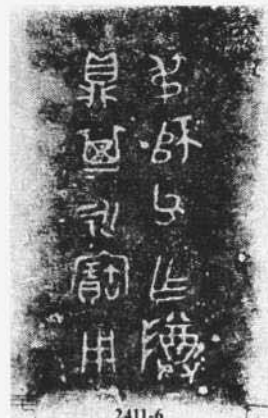 弔師父乍隣
鼎其永寶用
2411-6